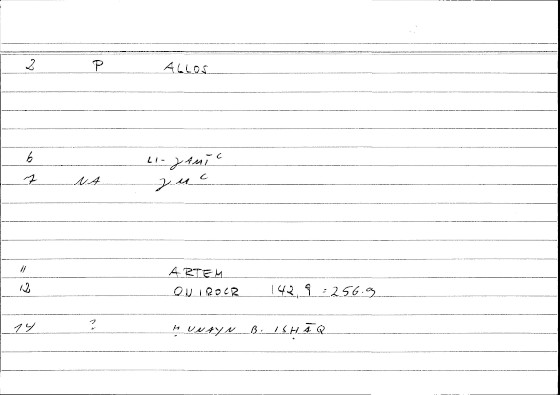 2 P ALLOS
6 LI-ǦAMĪʿ
7 NA ǦMʿ
11 ARTEM
12 142,9 = 256.9
14 ? ḤUNAYN B. ISḤĀQ